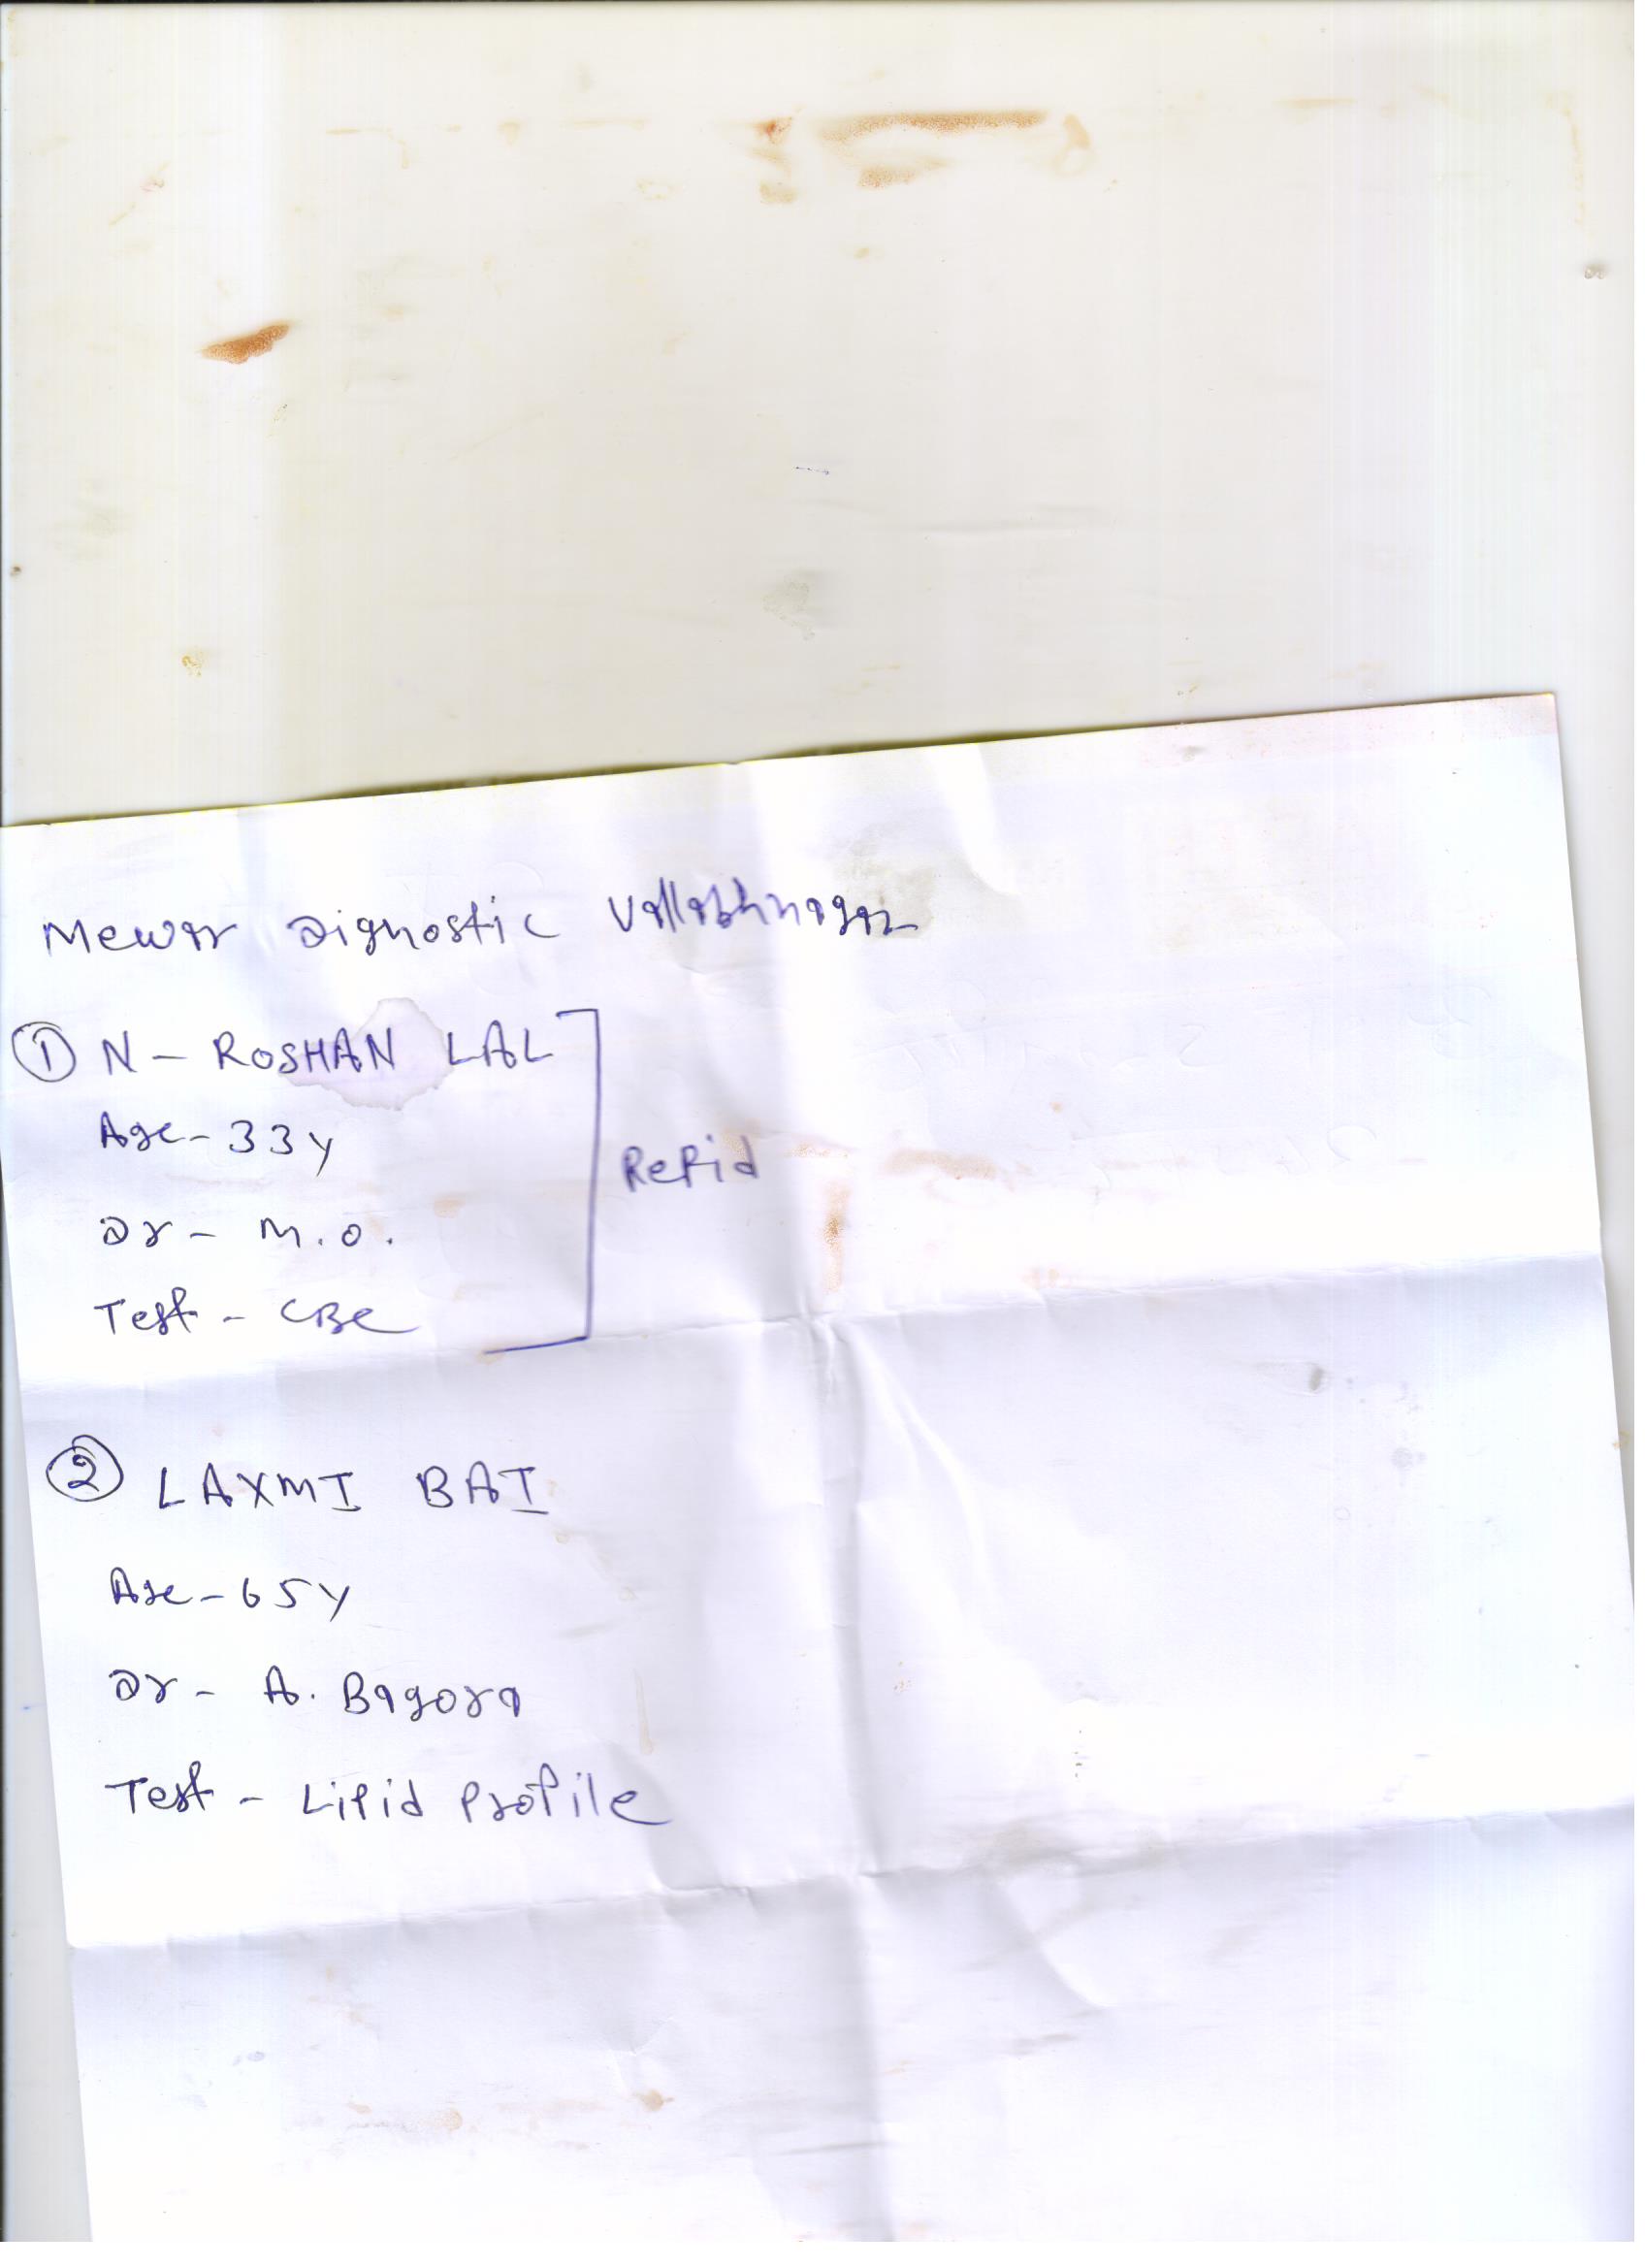 Mewar Dignostic Vallabhnagar
① N - ROSHAN LAL
Age - 33y
Dr - M.O.
Test - CBC
Repid
② LAXMI BAI
Age - 65y
Dr - A. Bagora
Test - Lipid Profile